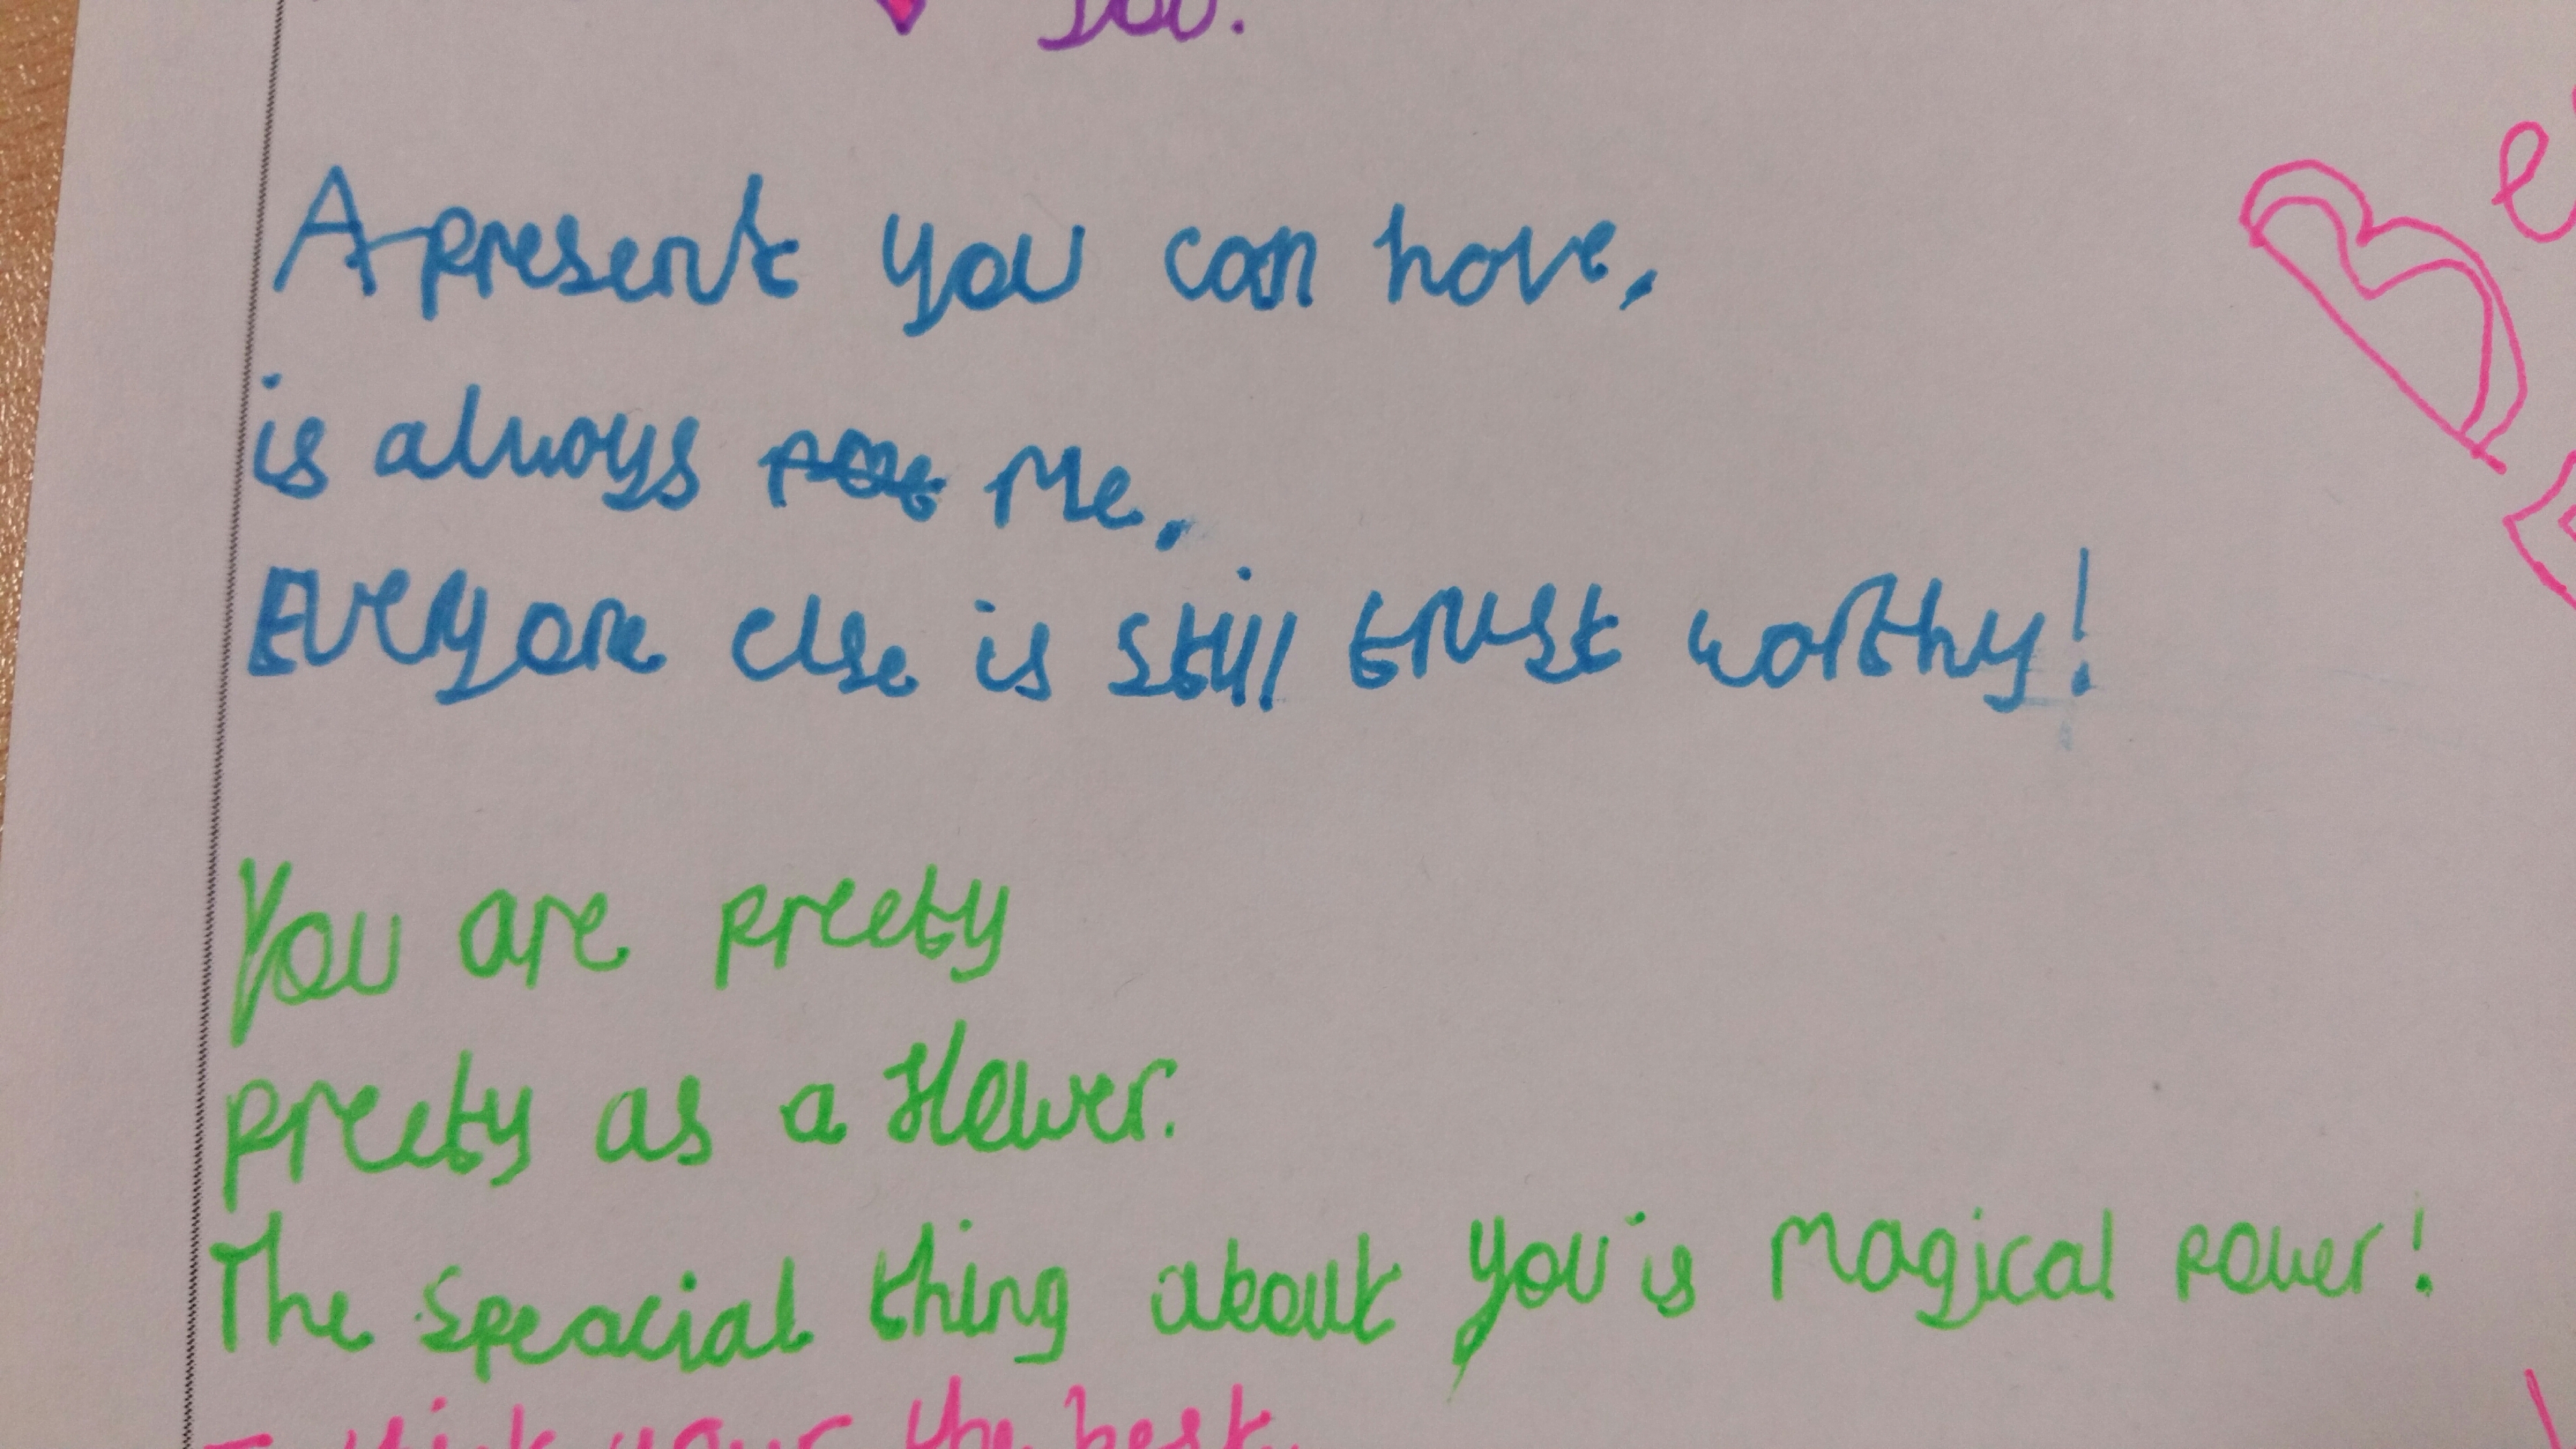 you.
A present you can have,
is always me.
Everyone else is still trust worthy!
You are preety
preety as a flower.
The speacial thing about you is magical power!
your the best